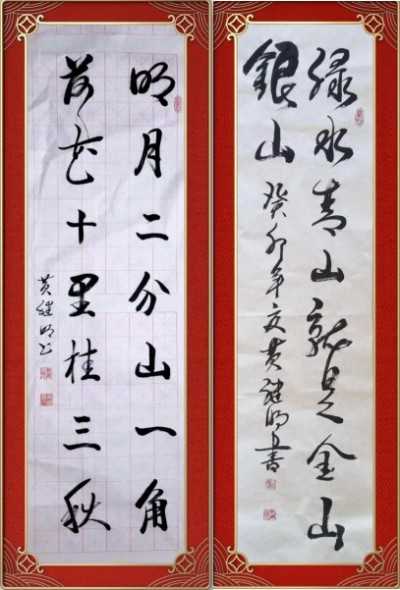 明月二分山一角
荷花十里桂三秋
黄继明书
绿水青山就是金山
銀山
癸卯年夏黄继明書